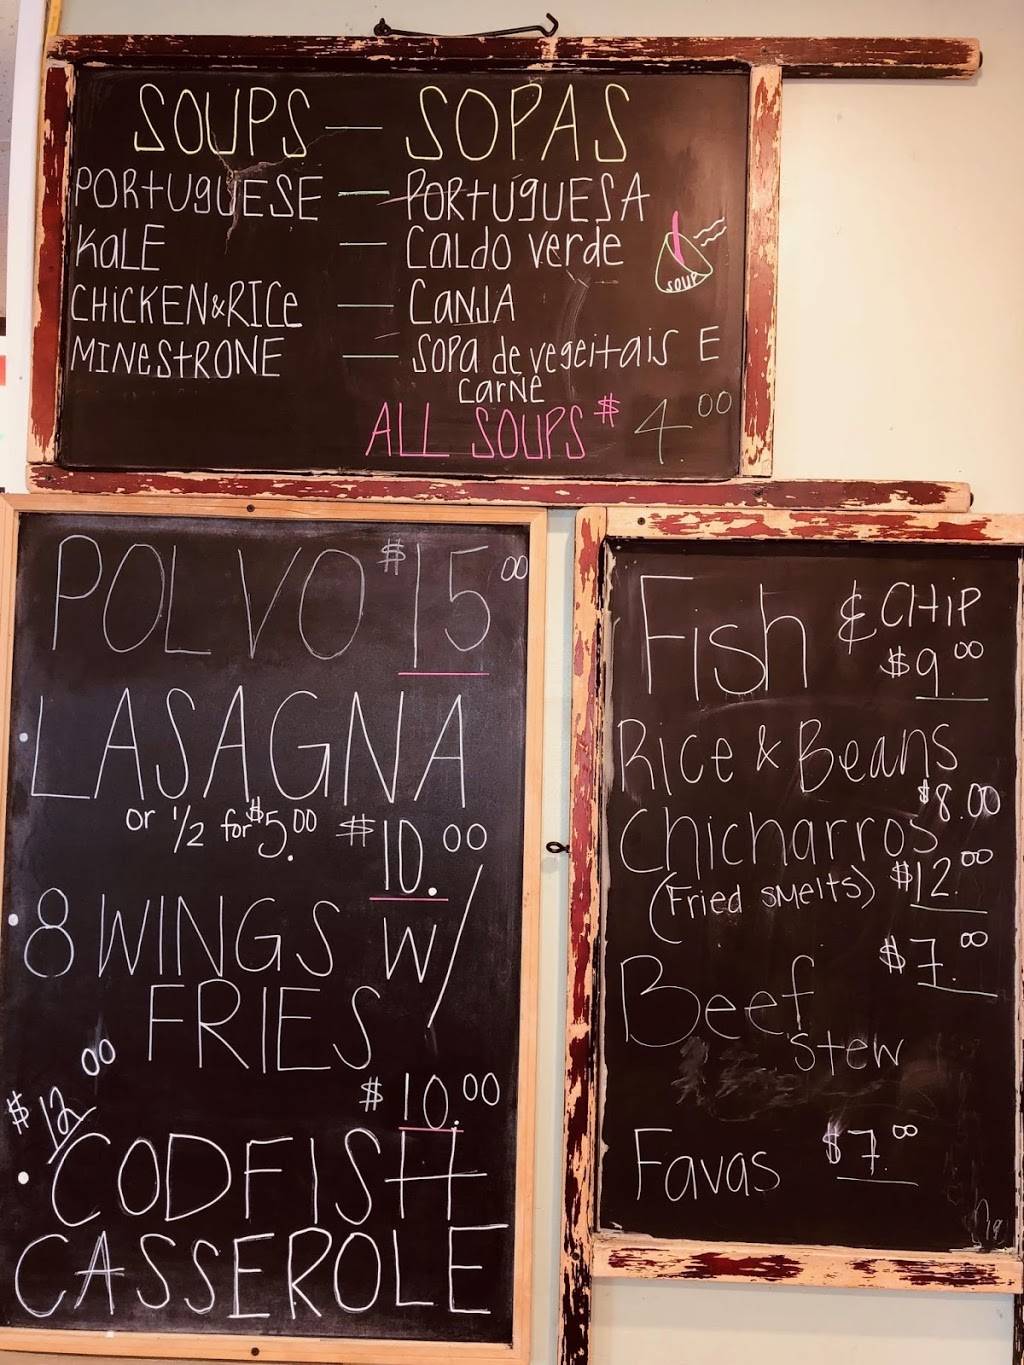 SOUPS — SOPAS
PORTUGUESE — PORTUGUESA
KALE — CALDO VERDE
CHICKEN & RICE — CANJA
MINESTRONE — SOPA DE VEGEITAIS E
CARNE
SOUP
ALL SOUPS $4.00
POLVO $15.00
LASAGNA
or 1/2 for $5.00 $10.00
8 WINGS W/
FRIES
$10.00
$12.00
CODFISH
CASSEROLE
Fish & CHIP
$9.00
Rice & Beans
$8.00
Chicharros
(Fried smelts) $12.00
$7.00
Beef
Stew
Favas $7.00